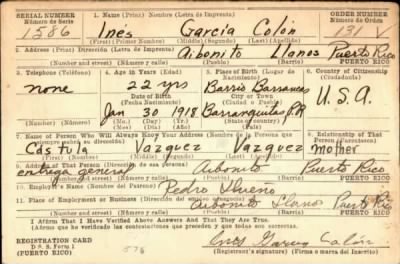 SERIAL NUMBER
Número de Serie
1586
1. Name (Print) Nombre (Letra de Imprenta)
Ines Garcia Colón
(First) (Primer Nombre) (Middle) (Segundo) (Last) (Apellido)
ORDER NUMBER
Número de Orden
131
2. Address (Print) Dirección (Letra de Imprenta)
Aibonito Llanos Puerto Rico
(Number) (Número) (Street) (Calle) (Town) (Pueblo) (Barrio) PUERTO RICO
3. Telephone (Teléfono)
none
4. Age in Years (Edad)
22 yrs
Date of Birth
(Fecha Nacimiento)
Jan 30 1918
(Mo.) (Day) (Yr.)
5. Place of Birth (Lugar de Nacimiento)
Barrio Barrancas
City or Town
(Ciudad o Pueblo)
Barranquitas P.R
(State) (Country)
6. Country of Citizenship
(Ciudadanía)
U.S.A.
7. Name of Person Who Will Always Know Your Address
Cástula Vazquez Vazquez
8. Relationship of That Person
mother
9. Address of That Person
entrega general Aibonito Puerto Rico
(Number) (Número) (Street) (Calle) (Town) (Pueblo) (Barrio) PUERTO RICO
10. Employer's Name (Nombre del Patrono)
Pedro
11. Place of Employment or Business
Aibonito Llanos Puerto Rico
(Number) (Número) (Street) (Calle) (Town) (Pueblo) (Barrio) PUERTO RICO
I Affirm That I Have Verified Above Answers And That They are True.
Afirmo que he verificado las contestaciones que preceden y que todas son correctas.
REGISTRATION CARD
D. S. S. Form 1
Ines Garcia Colón
(Registrant's signature) (Firma o marca del Inscrito)